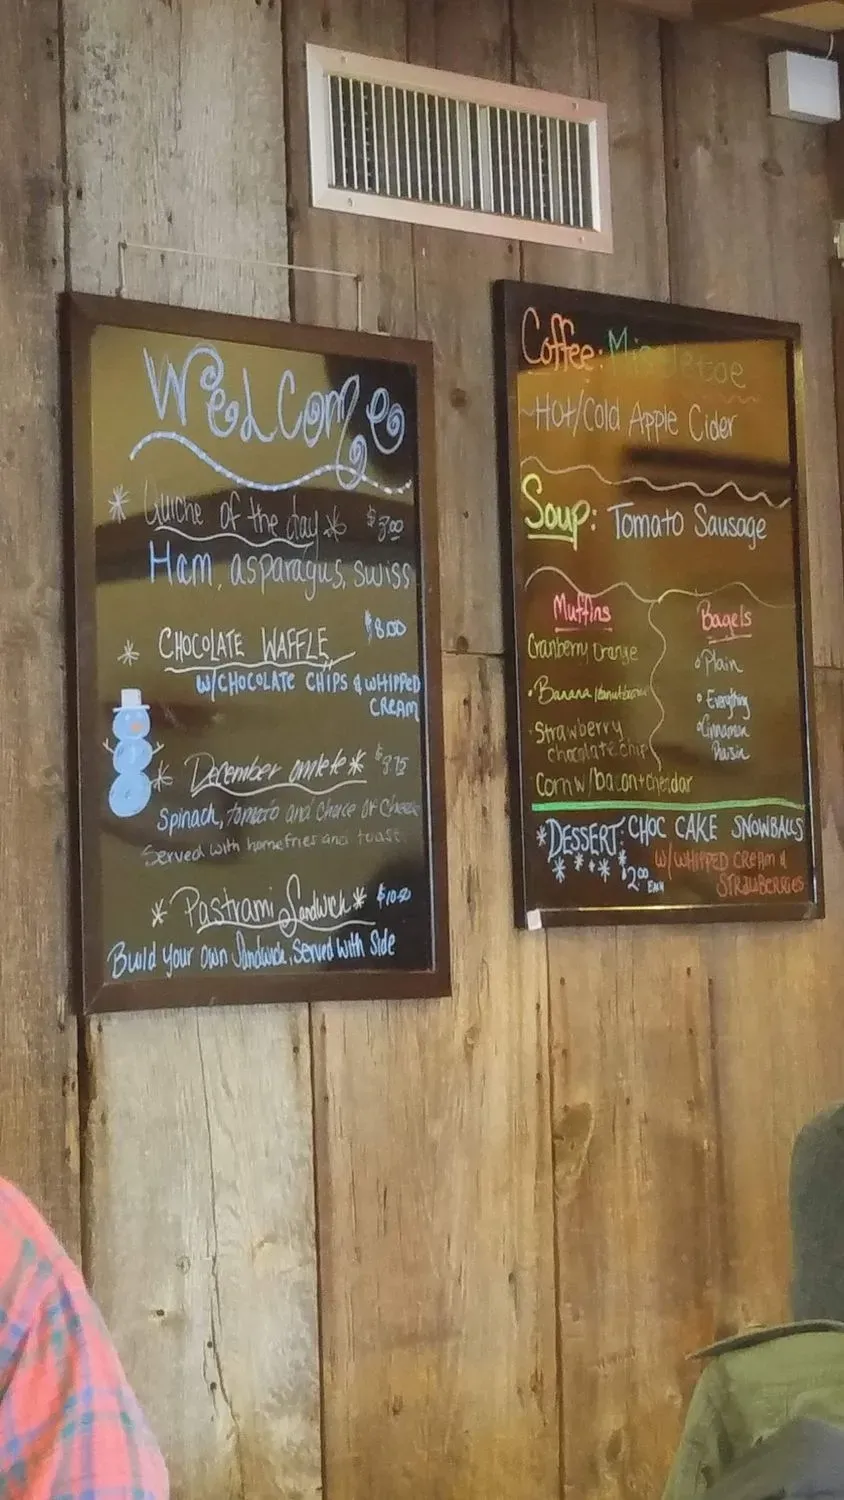 Welcome
Quiche of the day $3.00
Ham, asparagus, swiss
CHOCOLATE WAFFLE $8.00
W/CHOCOLATE CHIPS & WHIPPED
CREAM
December omlete $8.75
Spinach, tomato and choice of cheese
Served with homefries and toast.
Pastrami Sandwich
Build your own Sandwich, Served with Side
Coffee: Mistletoe
Hot/Cold Apple Cider
Soup: Tomato Sausage
Muffins
Cranberry Orange
Banana
Strawberry
chocolate chip
Corn w/bacon+cheddar
Bagels
Plain
Everything
Cinnamon
Raisin
DESSERT: CHOC CAKE SNOWBALLS
W/WHIPPED CREAM &
STRAWBERRIES
$2.00 EACH